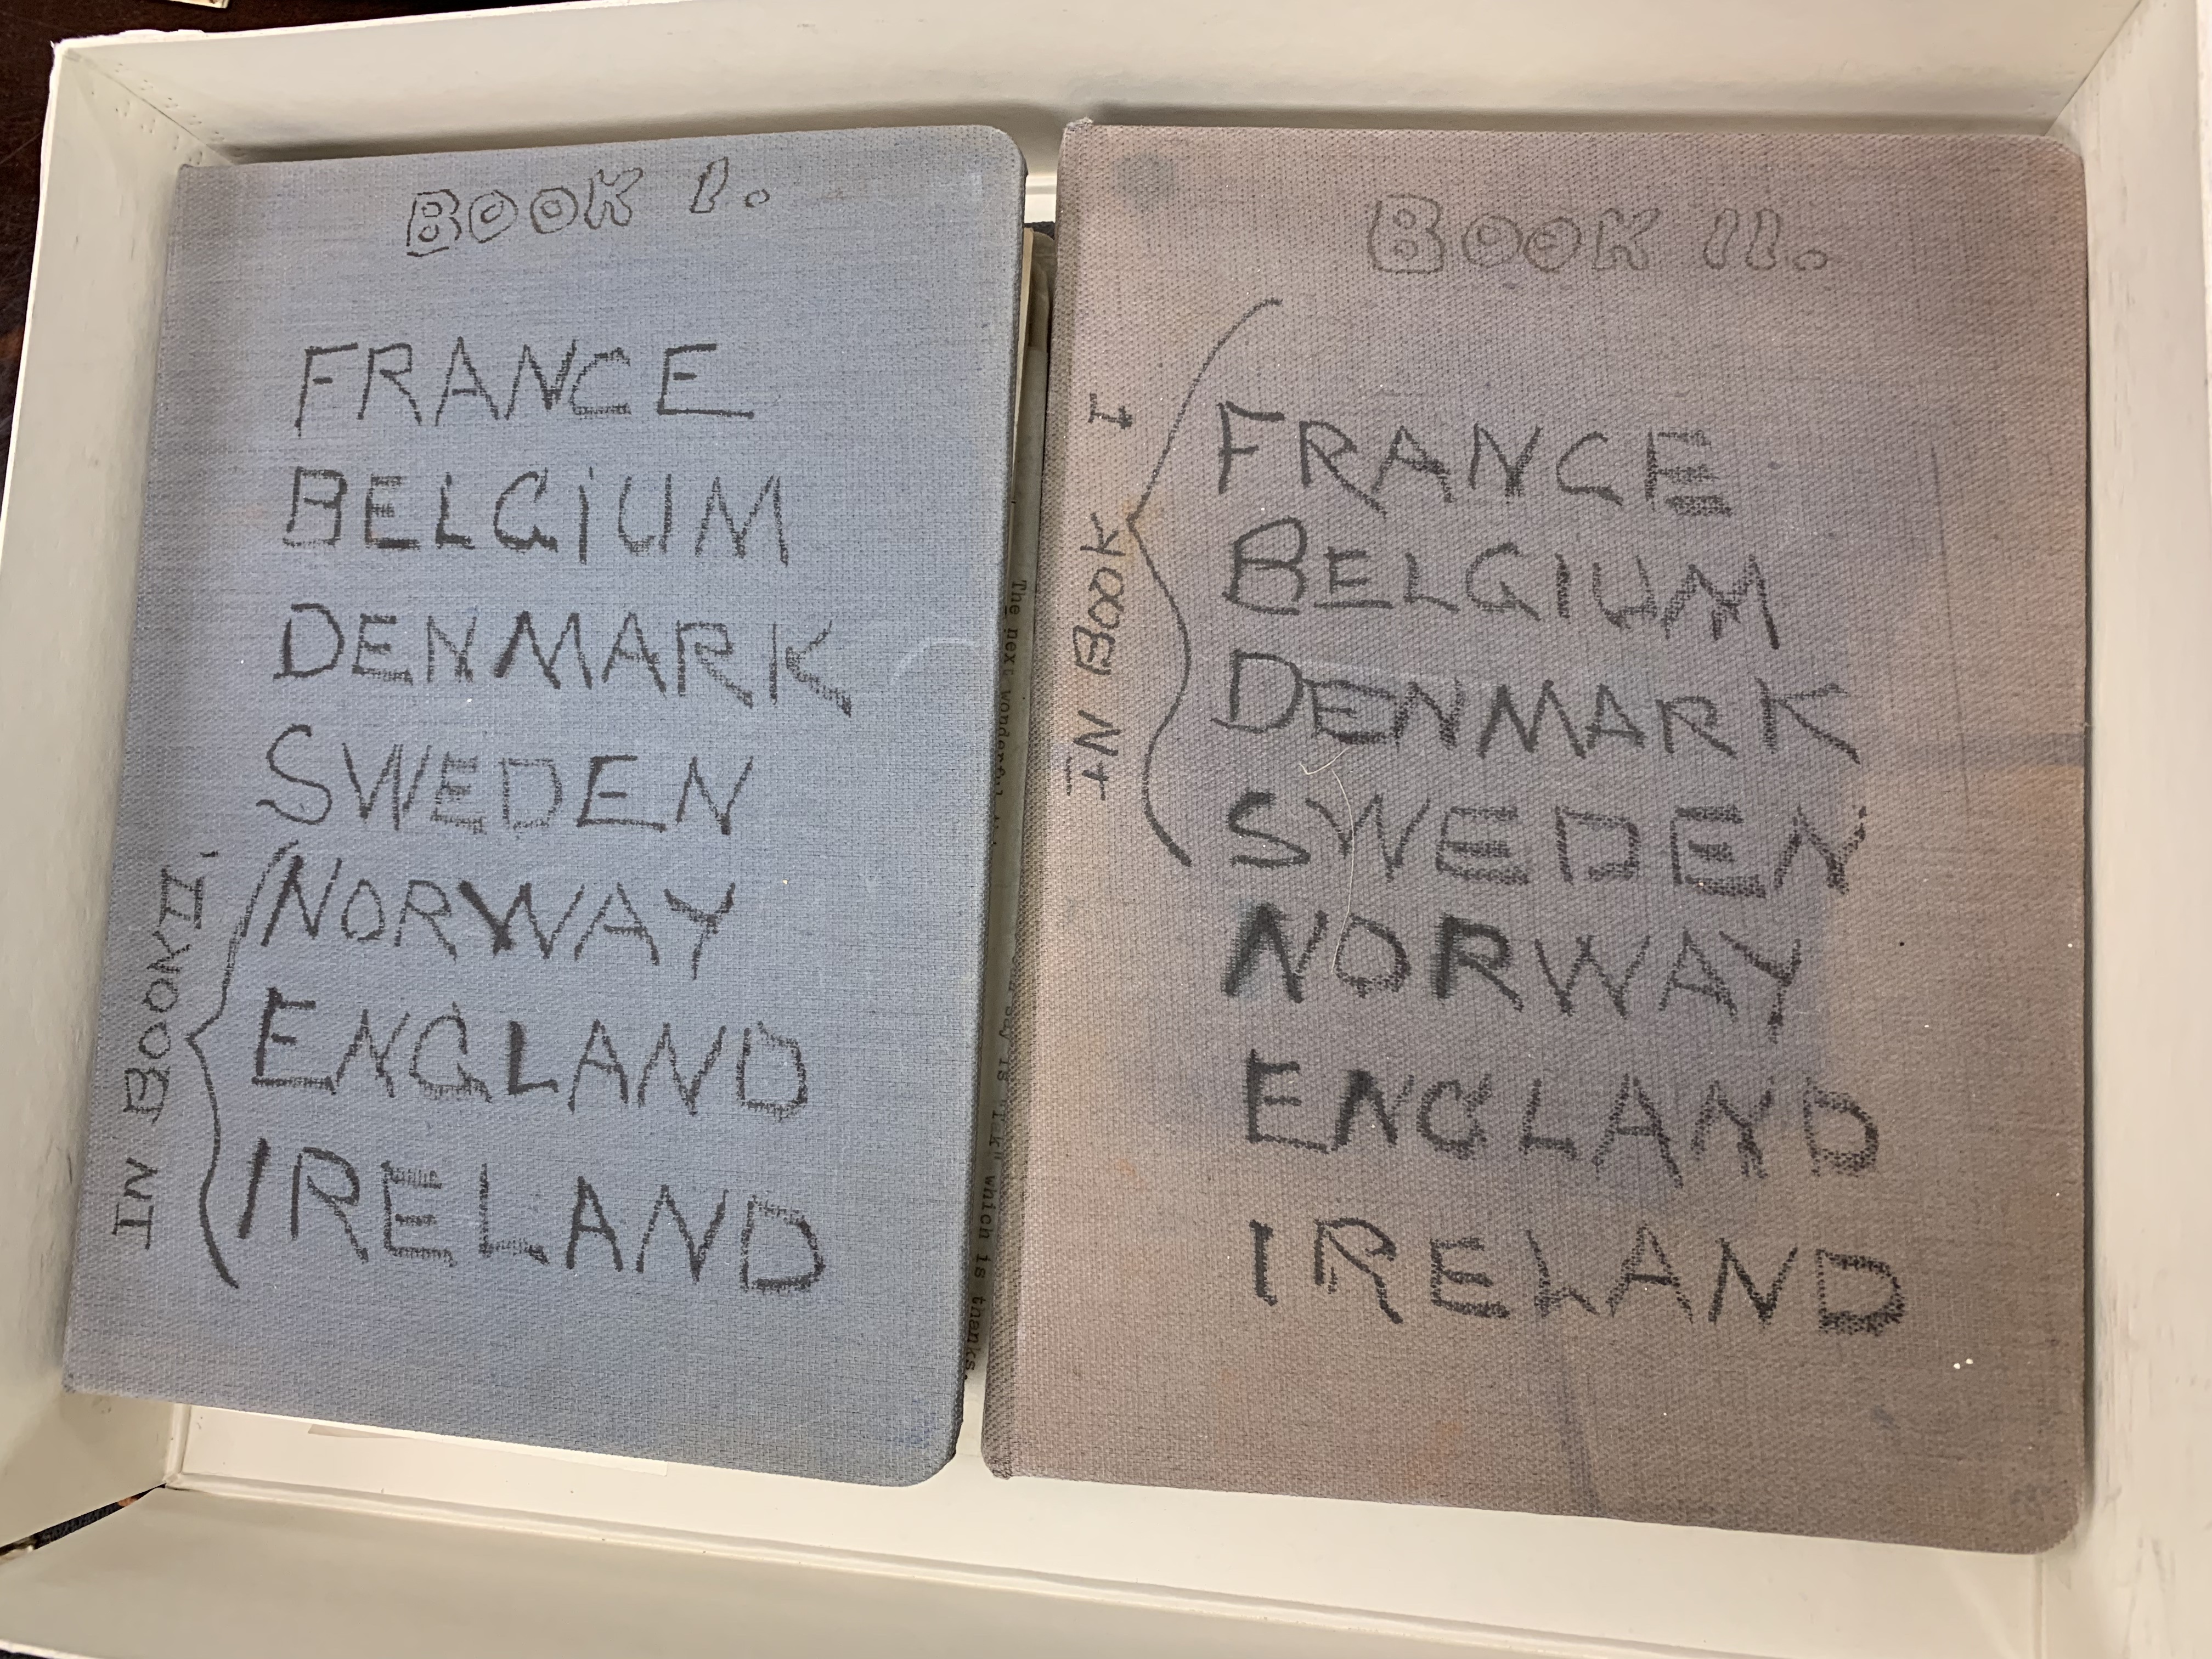 BOOK I.
FRANCE
BELGIUM
DENMARK
SWEDEN
IN BOOK II.
NORWAY
ENGLAND
IRELAND
The next wonderful
say is "Tak" which is thanks.
BOOK II.
IN BOOK I
FRANCE
BELGIUM
DENMARK
SWEDEN
NORWAY
ENGLAND
IRELAND